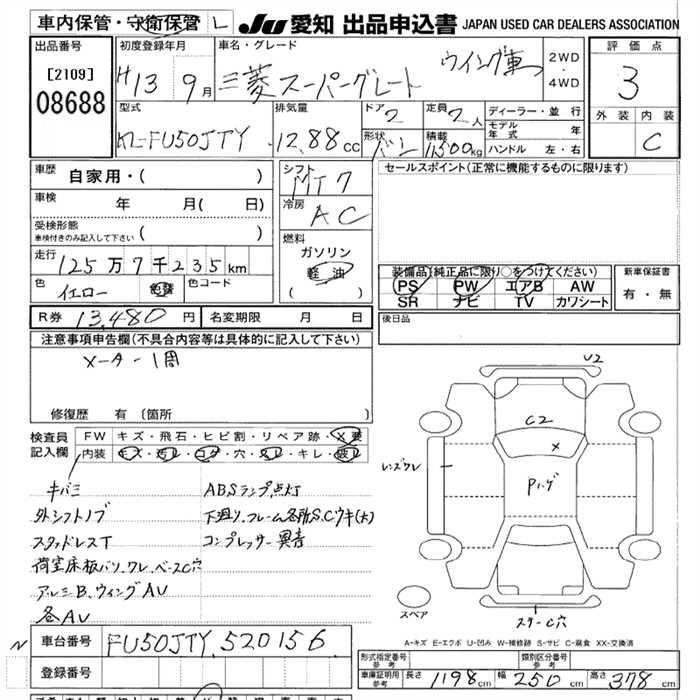 車内保管・守衛保管 L
JU 愛知 出品申込書 JAPAN USED CAR DEALERS ASSOCIATION
出品番号
[2109]
08688
初度登録年月
H13 9月
車名・グレード
三菱 スーパーグレート ウイング車
2WD
・
4WD
評価点
3
外装 内装
C
型式
KL-FU50JTY
排気量
12.88cc
ドア
2
形状
バン
定員
2人
積載
11,500kg
ディーラー・並行
モデル年式 年
ハンドル 左・右
車歴
自家用・( )
車検
年 月( 日)
受検形態
車検付きのみ記入して下さい ( )
走行
125万7千235km
色
イエロー 色替
色コード
シフト
MT7
冷房
AC
燃料
ガソリン
軽油
( )
セールスポイント(正常に機能するものに限ります)
装備品(純正品に限り○をつけてください)
PS PW エアB AW
SR ナビ TV カワシート
新車保証書
有・無
R券 13,480円
名変期限 月 日
後日品
注意事項申告欄(不具合内容等は具体的に記入して下さい)
X-A-1周
修復歴 有(箇所
検査員
記入欄
FW キズ・飛石・ヒビ割・リペア跡・X要
内装 キズ・汚レ・コゲ・穴・スレ・キレ・破レ
キバミ
外シフトノブ
スタッドレスT
荷室床板バリ、ワレ、ベースC穴
アルミB、ウィングAU
各AU
ABSランプ点灯
下廻り、フレーム各所S.Cウキ(大)
コンプレッサー異音
U2
C2
X
レンズワレ
Pハゲ
ステーC穴
スペア
A-キズ E-エクボ U-凹み W-補修跡 S-サビ C-腐食 XX-交換済
N
車台番号
FU50JTY-520156
登録番号
形式指定番号
参考
類別区分番号
参考
車庫証明用
参考
長さ 1198cm 幅 250cm 高さ 378cm